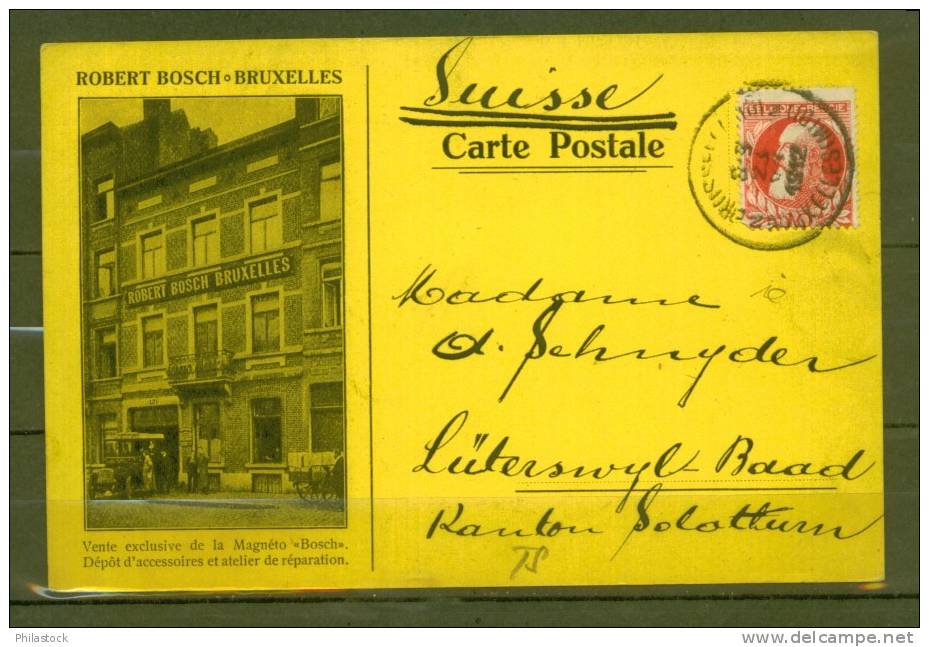 ROBERT BOSCH • BRUXELLES
Suisse
Carte Postale
BELGIQUE-BELGIË
ROBERT BOSCH BRUXELLES
Madame
A. Schnyder
Lüterswyl-Baad
Kanton Solothurn
Vente exclusive de la Magnéto «Bosch».
Dépôt d'accessoires et atelier de réparation.
Philastock
www.delcampe.net